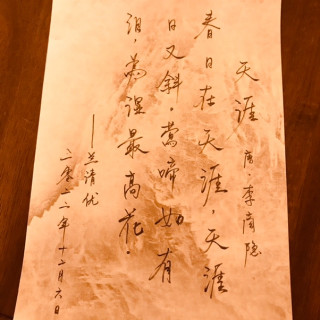 天涯 唐·李商隐
春日在天涯，天涯
日又斜。鶯啼如有
泪，為湿最高花。
——兰清优
二零二二年十二月六日